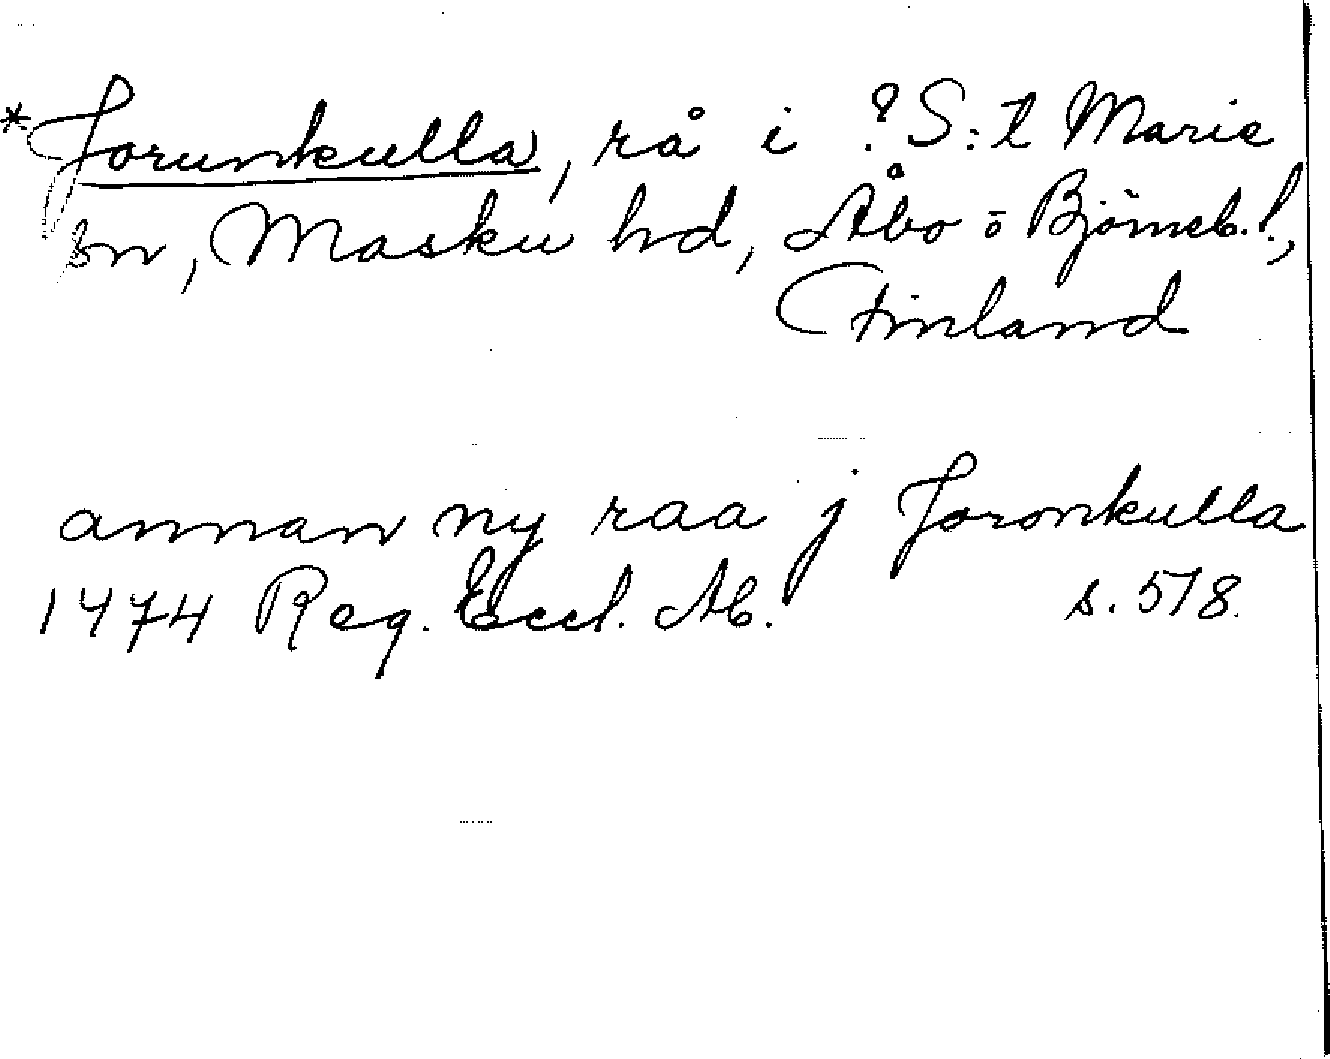 *Jorunkulla, rå i ?S:t Marie
sn, Masku hd, Åbo o Björneb. l.,
Finland
annan ny raa j Joronkulla
1474 Reg. Eccl. Ab. s. 518.